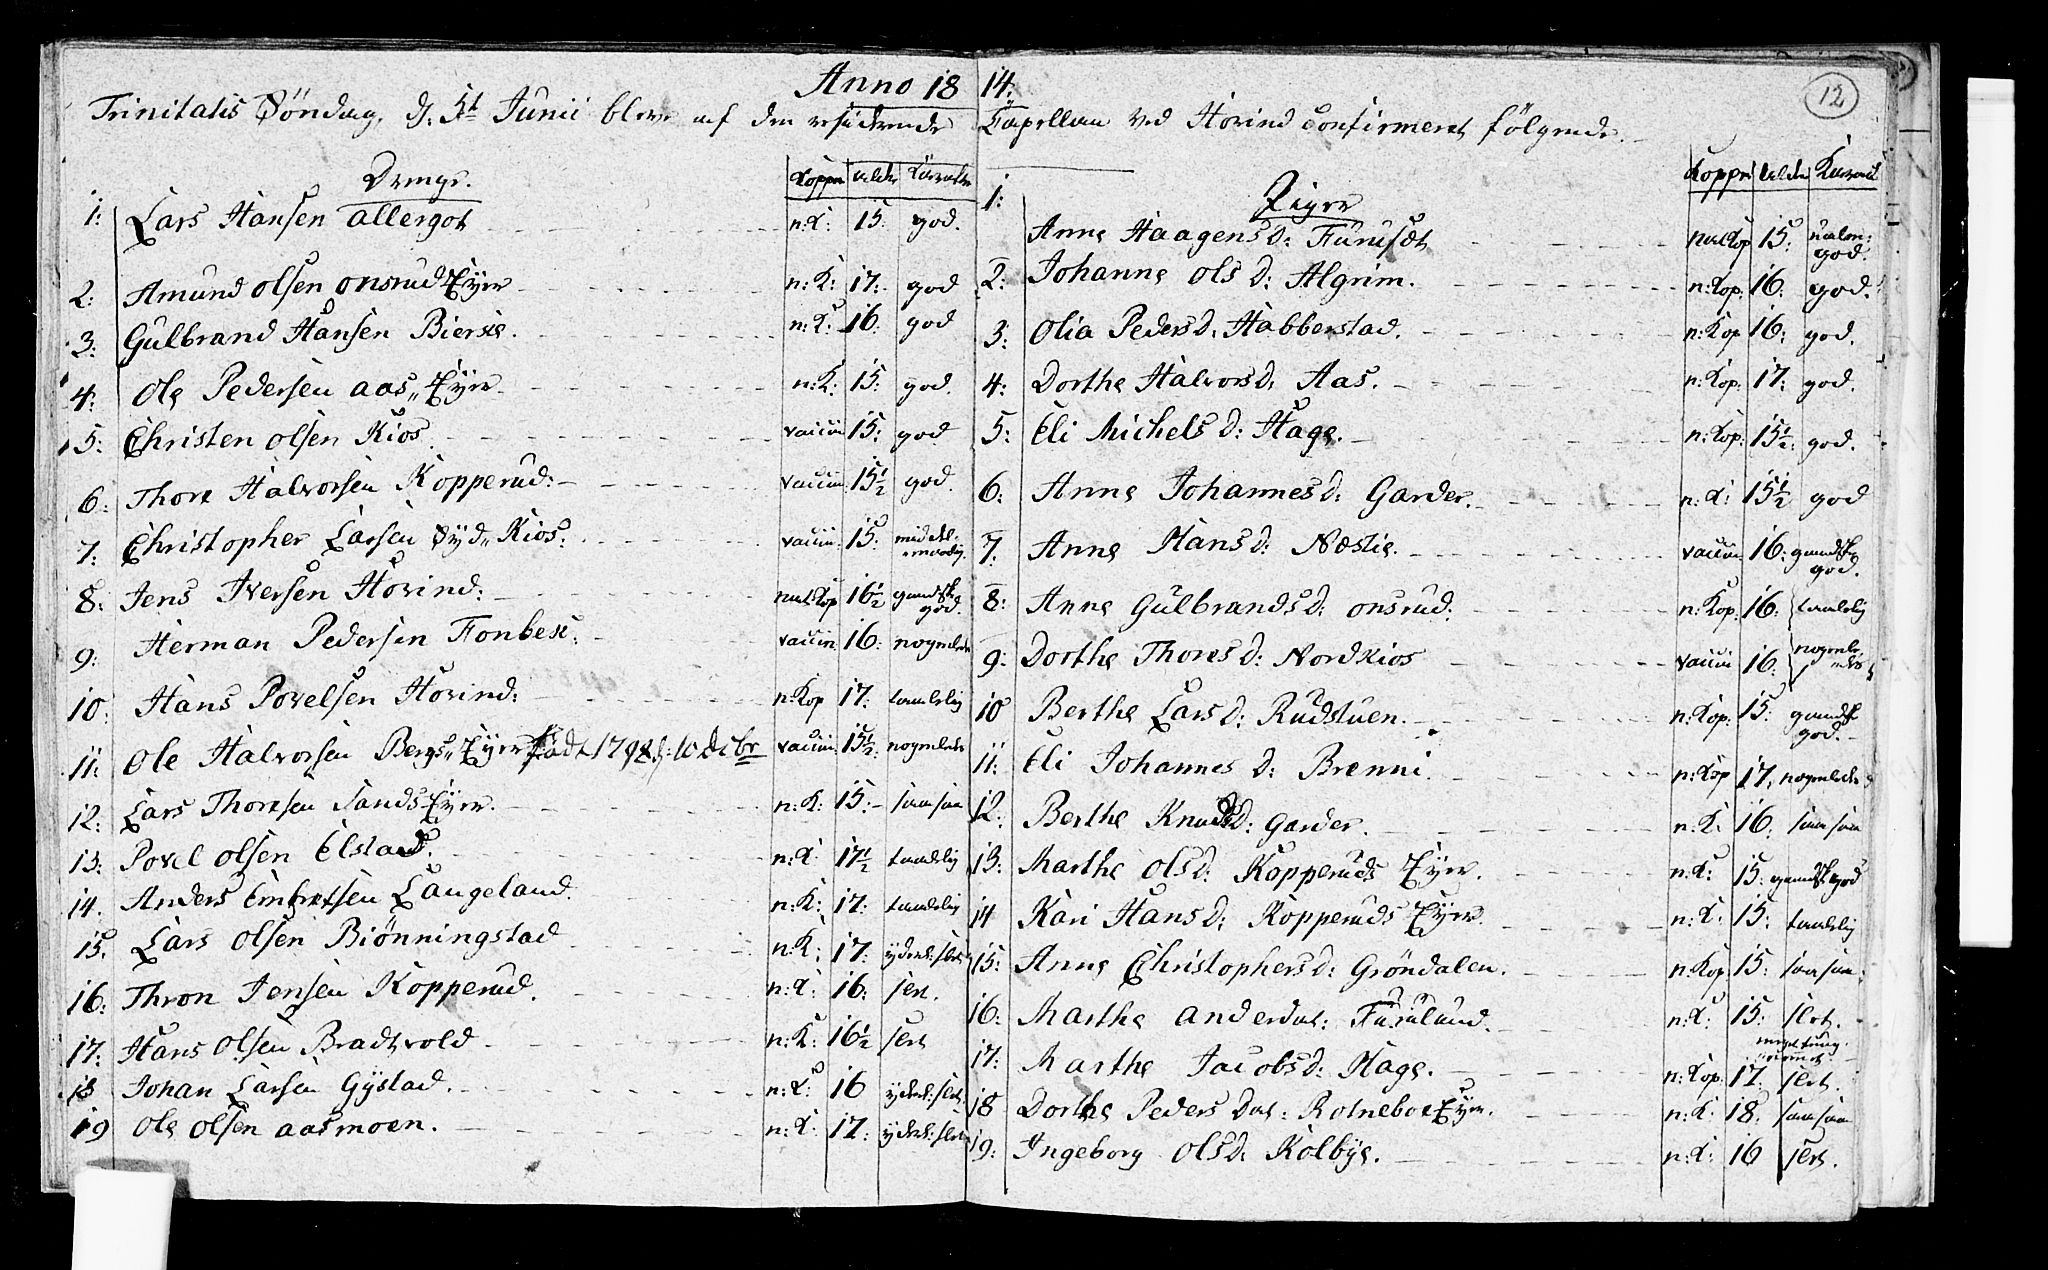 Anno 1814.
12
Trinitatis Söndag, d. 5t Junii blev af den residerende Capellan ved Hovind confirmeret fölgende.
Drenge. Koppr Alder Karakter
1: Lars Hansen Allergot n:K: 15: god.
2: Amund Olsen Onsrud Eyer n:K: 17: god
3: Gulbrand Hansen Bierke. n:K: 16: god
4: Ole Pedersen Aas„ Eyer n:K: 15: god.
5: Christen Olsen Kios. vaccin: 15: god
6: Thore Halvorsen Kopperud: vaccin: 15½ god.
7: Christopher Larsen Syd„ Kios: vaccin: 15: middel-maadig.
8: Jens Iversen Hovind: nat Kop 16½ gandske god.
9: Herman Pedersen Fonbek: vaccin: 16: nogenlede
10: Hans Povelsen Hovind: n:Kop 17: taalelig
11: Ole Halvorsen Bergs„ Eyer födt 1798 d: 10 Decbr vaccin: 15½: nogenlede
12: Lars Thoresen Sands Eyer. n:K: 15: saasaa
13: Povel Olsen Elstad. n:K: 17½ taalelig
14. Anders Embretsen Langeland. n:K: 17: taalelig
15. Lars Olsen Biönningstad n:K: 17: yderl: slet
16: Thron Jensen Kopperud. n:K: 16: slet.
17: Hans Olsen Bradtvold n:K: 16½ slet
18 Johan Larsen Gystad. n:K: 16 yderl: slet
19 Ole Olsen Aasmoen. n:K: 17: yderl: slet
Piger Koppr Alder Karact
1: Anne Haagensd: Furuset nat Kop 15: god.
2: Johanne Olsd: Algrim. n:Kop. 16: god.
3: Olia Pedersd: Habberstad. n:Kop 16: god.
4: Dorthe Halvorsd: Aas. n:Kop: 17: god.
5: Eli Michelsd: Hage. n:Kop: 15½: god.
6: Anne Johannesd: Garder. n:K: 15½ god
7: Anne Hansd: Næstie. vaccin: 16: gandske god.
8: Anne Gulbrandsd: Onsrud: n:Kop. 16: taalelig
9: Dorthe Thoresd: Nordkios vaccin 16: nogenledes
10 Berthe Larsd: Rudstuen. n:Kop: 15: gandsk god.
11: Eli Johannesd: Brenni. n:Kop 17: nogenlede
12: Berthe Knudsd: Garder. n:K: 16: saasaa
13: Marthe Olsd: Kopperuds Eyer. n:K: 15: gandsk god
14 Kari Hansd: Kopperuds Eyer n:K: 15: taalelig
15: Anne Christophersd: Gröndalen. n:Kop 15: saasaa.
16: Marthe Anderdat: Furulund. n:K: 15: slet.
17: Marthe Jacobsd: Hage. n:Kop. 17: meget tung slet.
18 Dorthe Peders Dat: Rotneboe Eyer. n:K: 18: saasaa
19: Ingeborg Olsd: Kolbye. n:K: 16 slet.